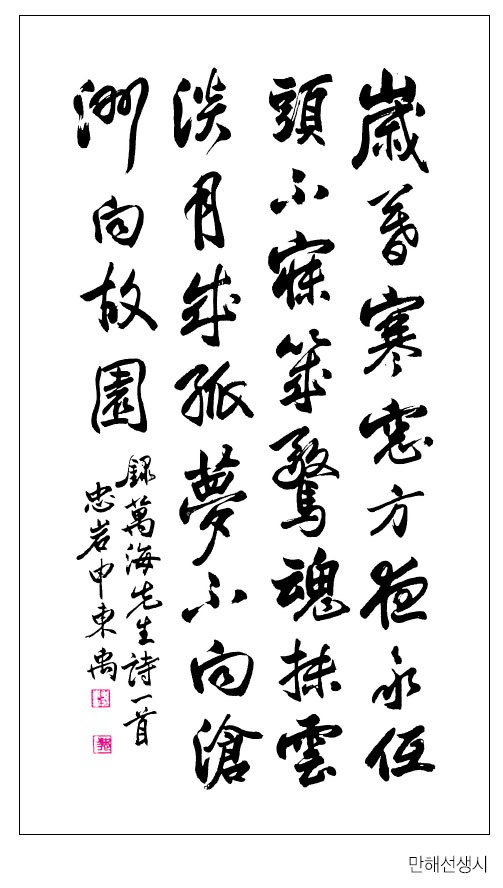 歲暮寒窓方夜永低
頭不寐幾驚魂抹雲
淡月成孤夢不向滄
洲向故園
錄萬海先生詩一首
忠岩申東禹
만해선생시